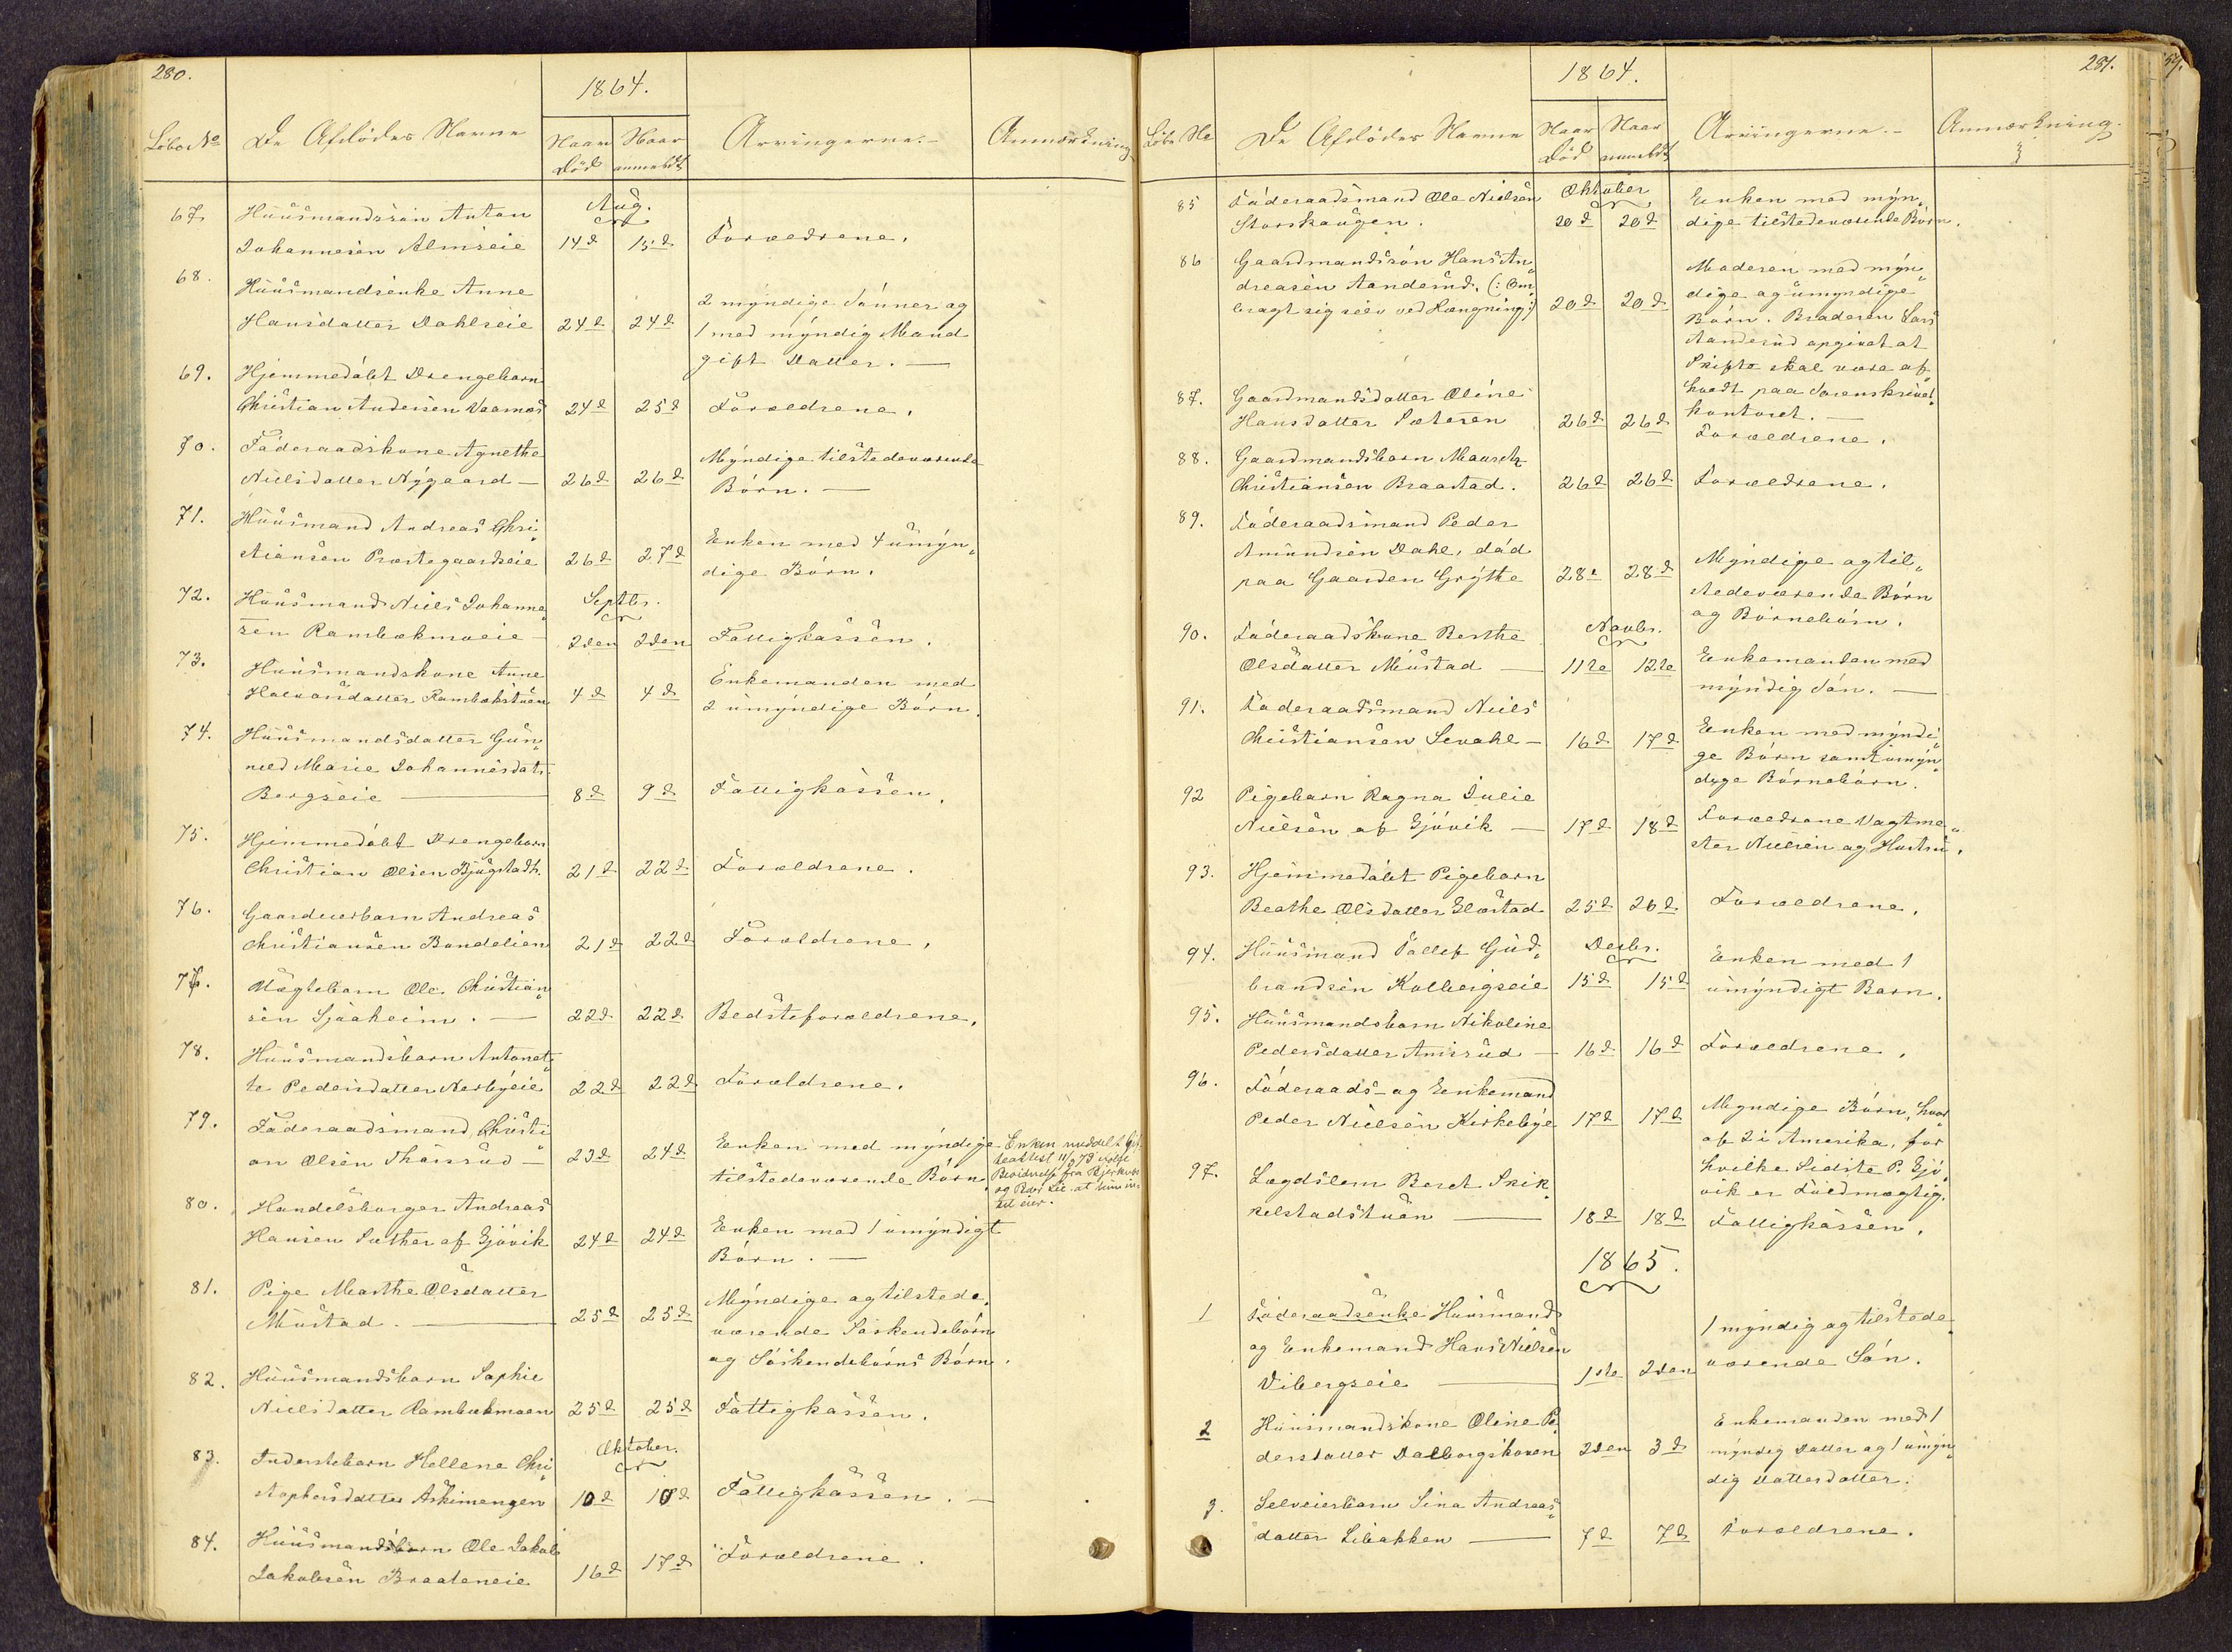 280.
1864.
Løbe No
De Afdödes Navne
Naar död
Naar anmeldt
Arvingerne.
Anmærkning
Aug.
67.
Huusmandssön Anton
Johannesen Almseie
14d
15d
Forældrene.
68.
Huusmandsenke Anne
Hansdatter Dahlseie
24d
24d
2 myndige Sönner og
1 med myndig Mand
gift Datter. —
69.
Hjemmedöbt Drengebarn
Christian Andersen Vaarnæs
24d
25d
Forældrene.
70.
Föderaadskone Agnethe
Nielsdatter Nygaard —
26d
26d
Myndige tilstedeværende
Börn. —
71.
Huusmand Andreas Chri„
stiansen Præstegaardseie
26d
27d
Enken med 4 umyn„
dige Börn.
72.
Septbr.
Huusmand Niels Johanne„
sen Rambækmoeie
2den
2den
Fattigkassen.
73.
Huusmandskone Anne
Halvorsdatter Rambækstuen
4d
4d
Enkemanden med
2 umyndige Börn.
74.
Huusmandsdatter Gun„
ild Marie Johannesdatr.
Bergseie —
8d
9d
Fattigkassen.
75.
Hjemmedöbt Drengebarn
Christian Olsen Bjugstadh.
21d
22d
Forældrene.
76.
Gaardeierbarn Andreas
Christiansen Bondelien
21d
22d
Forældrene.
77.
Uægtebarn Ole Christian„
sen Sjaaheim. —
22d
22d
Bedsteforældrene.
78.
Huusmandsbarn Antonet„
te Pedersdatter Nerbyeie
22d
22d
Forældrene.
79.
Föderaadsmand Christi„
an Olsen Thaisrud —
23d
24d
Enken med myndige
tilstedeværende Börn.
Enken meddelt
attest 11/9 73 ifølge
Bevidnelse fra
at hun in-
tet eier.
80.
Handelsborger Andreas
Hansen Sæther af Gjövik
24d
24d
Enken med 1 umyndigt
Börn. —
81.
Pige Marthe Olsdatter
Mustad. —
25d
25d
Myndige og tilstede„
værende Söskendebörn
og Söskendebörns Börn.
82.
Huusmandsbarn Sophie
Nielsdatter Rambækmoen
25d
25d
Fattigkassen.
Oktober.
83.
Inderstebarn Hellene Chri„
stophersdatter Askimengen
10d
10d
Fattigkassen. —
84.
Huusmandsbarn Ole Jakob
Jakobsen Braateneie
16d
17d
Forældrene.
281.
1864.
Løbe No
De Afdödes Navne
Naar död
Naar anmeldt
Arvingerne. —
Anmærkning.
Oktober
85
Föderaadsmand Ole Nielsen
Storshaugen.
20d
20d
Enken med myn„
dige tilstedeværende Börn.
86
Gaardmandssön Hans An„
dreasen Aandsrud. (: Om„
bragt sig selv ved Hængning:)
20d
20d
Moderen med myn„
dige og umyndige
Börn. Broderen Lars
Aandsrud opgivet at
Skifte skal være af„
holdt paa Sorenskriver„
kontoret. —
87.
Gaardmandsdatter Oline
Hansdatter Sæteren
26d
26d
Forældrene.
88.
Gaardmandsbarn Mauritz
Christiansen Braastad.
26d
26d
Forældrene.
89.
Föderaadsmand Peder
Amundsen Dahl, död
paa Gaarden Grythe
28d
28d
Myndige og til„
stedeværende Börn
og Börnebörn.
Novbr.
90.
Föderaadskone Berthe
Olsdatter Mustad —
11te
12te
Enkemanden med
myndig Sön. —
91.
Föderaadsmand Niels
Christiansen Sevahl —
16d
17d
Enken med myndi„
ge Börn samt umyn„
dige Börnebörn.
92
Pigebarn Ragna Julie
Nielsen af Gjövik —
17d
18d
Forældrene Vagtme„
ster Nielsen og Hustru.
93.
Hjemmedöbt Pigebarn
Beathe Olsdatter Elvestad
25d
26d
Forældrene.
Decbr.
94.
Huusmand Tollef Gud„
brandsen Kolbergseie
15d
15d
Enken med 1
umyndigt Barn.
95.
Huusmandsbarn Nikoline
Pedersdatter Amisrud —
16d
16d
Forældrene.
96.
Föderaads- og Enkemand
Peder Nielsen Kirkebye
17d
17d
Myndige Börn, hvor„
af 2 i Amerika, for
hvilke Sidste P. Gjö„
vik er Fuldmægtig.
97.
Lægdslem Beret Skik„
kelstadstuen —
18d
18d
Fattigkassen.
1865.
1
Föderaadsenke Huusmand
og Enkemand Hans Nielsen
Vibergseie —
1ste
2den
1 myndig og tilstede„
værende Sön.
2
Huusmandskone Oline Pe„
dersdatter Dalborgskoven
2den
3d
Enkemanden med 1
myndig Datter og 1 umyn„
dig Datterdatter.
3.
Selveierbarn Sina Andreas„
datter Libakken —
7d
7d
Forældrene.